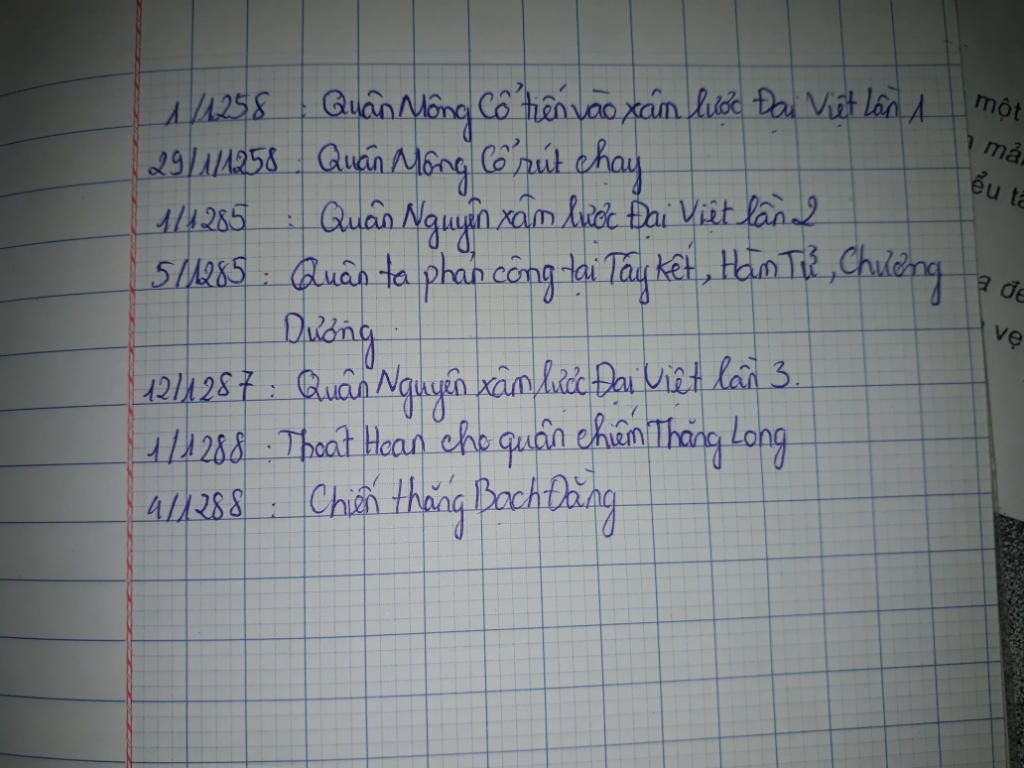 1/1258 : Quân Mông Cổ tiến vào xâm lược Đại Việt lần 1
29/1/1258 : Quân Mông Cổ rút chạy
1/1285 : Quân Nguyên xâm lược Đại Việt lần 2
5/1285 : Quân ta phản công tại Tây Kết, Hàm Tử, Chương
Dương.
12/1287 : Quân Nguyên xâm lược Đại Việt lần 3.
1/1288 : Thoát Hoan cho quân chiếm Thăng Long
4/1288 : Chiến thắng Bạch Đằng
một
mả
ểu tả
đế
vẹ